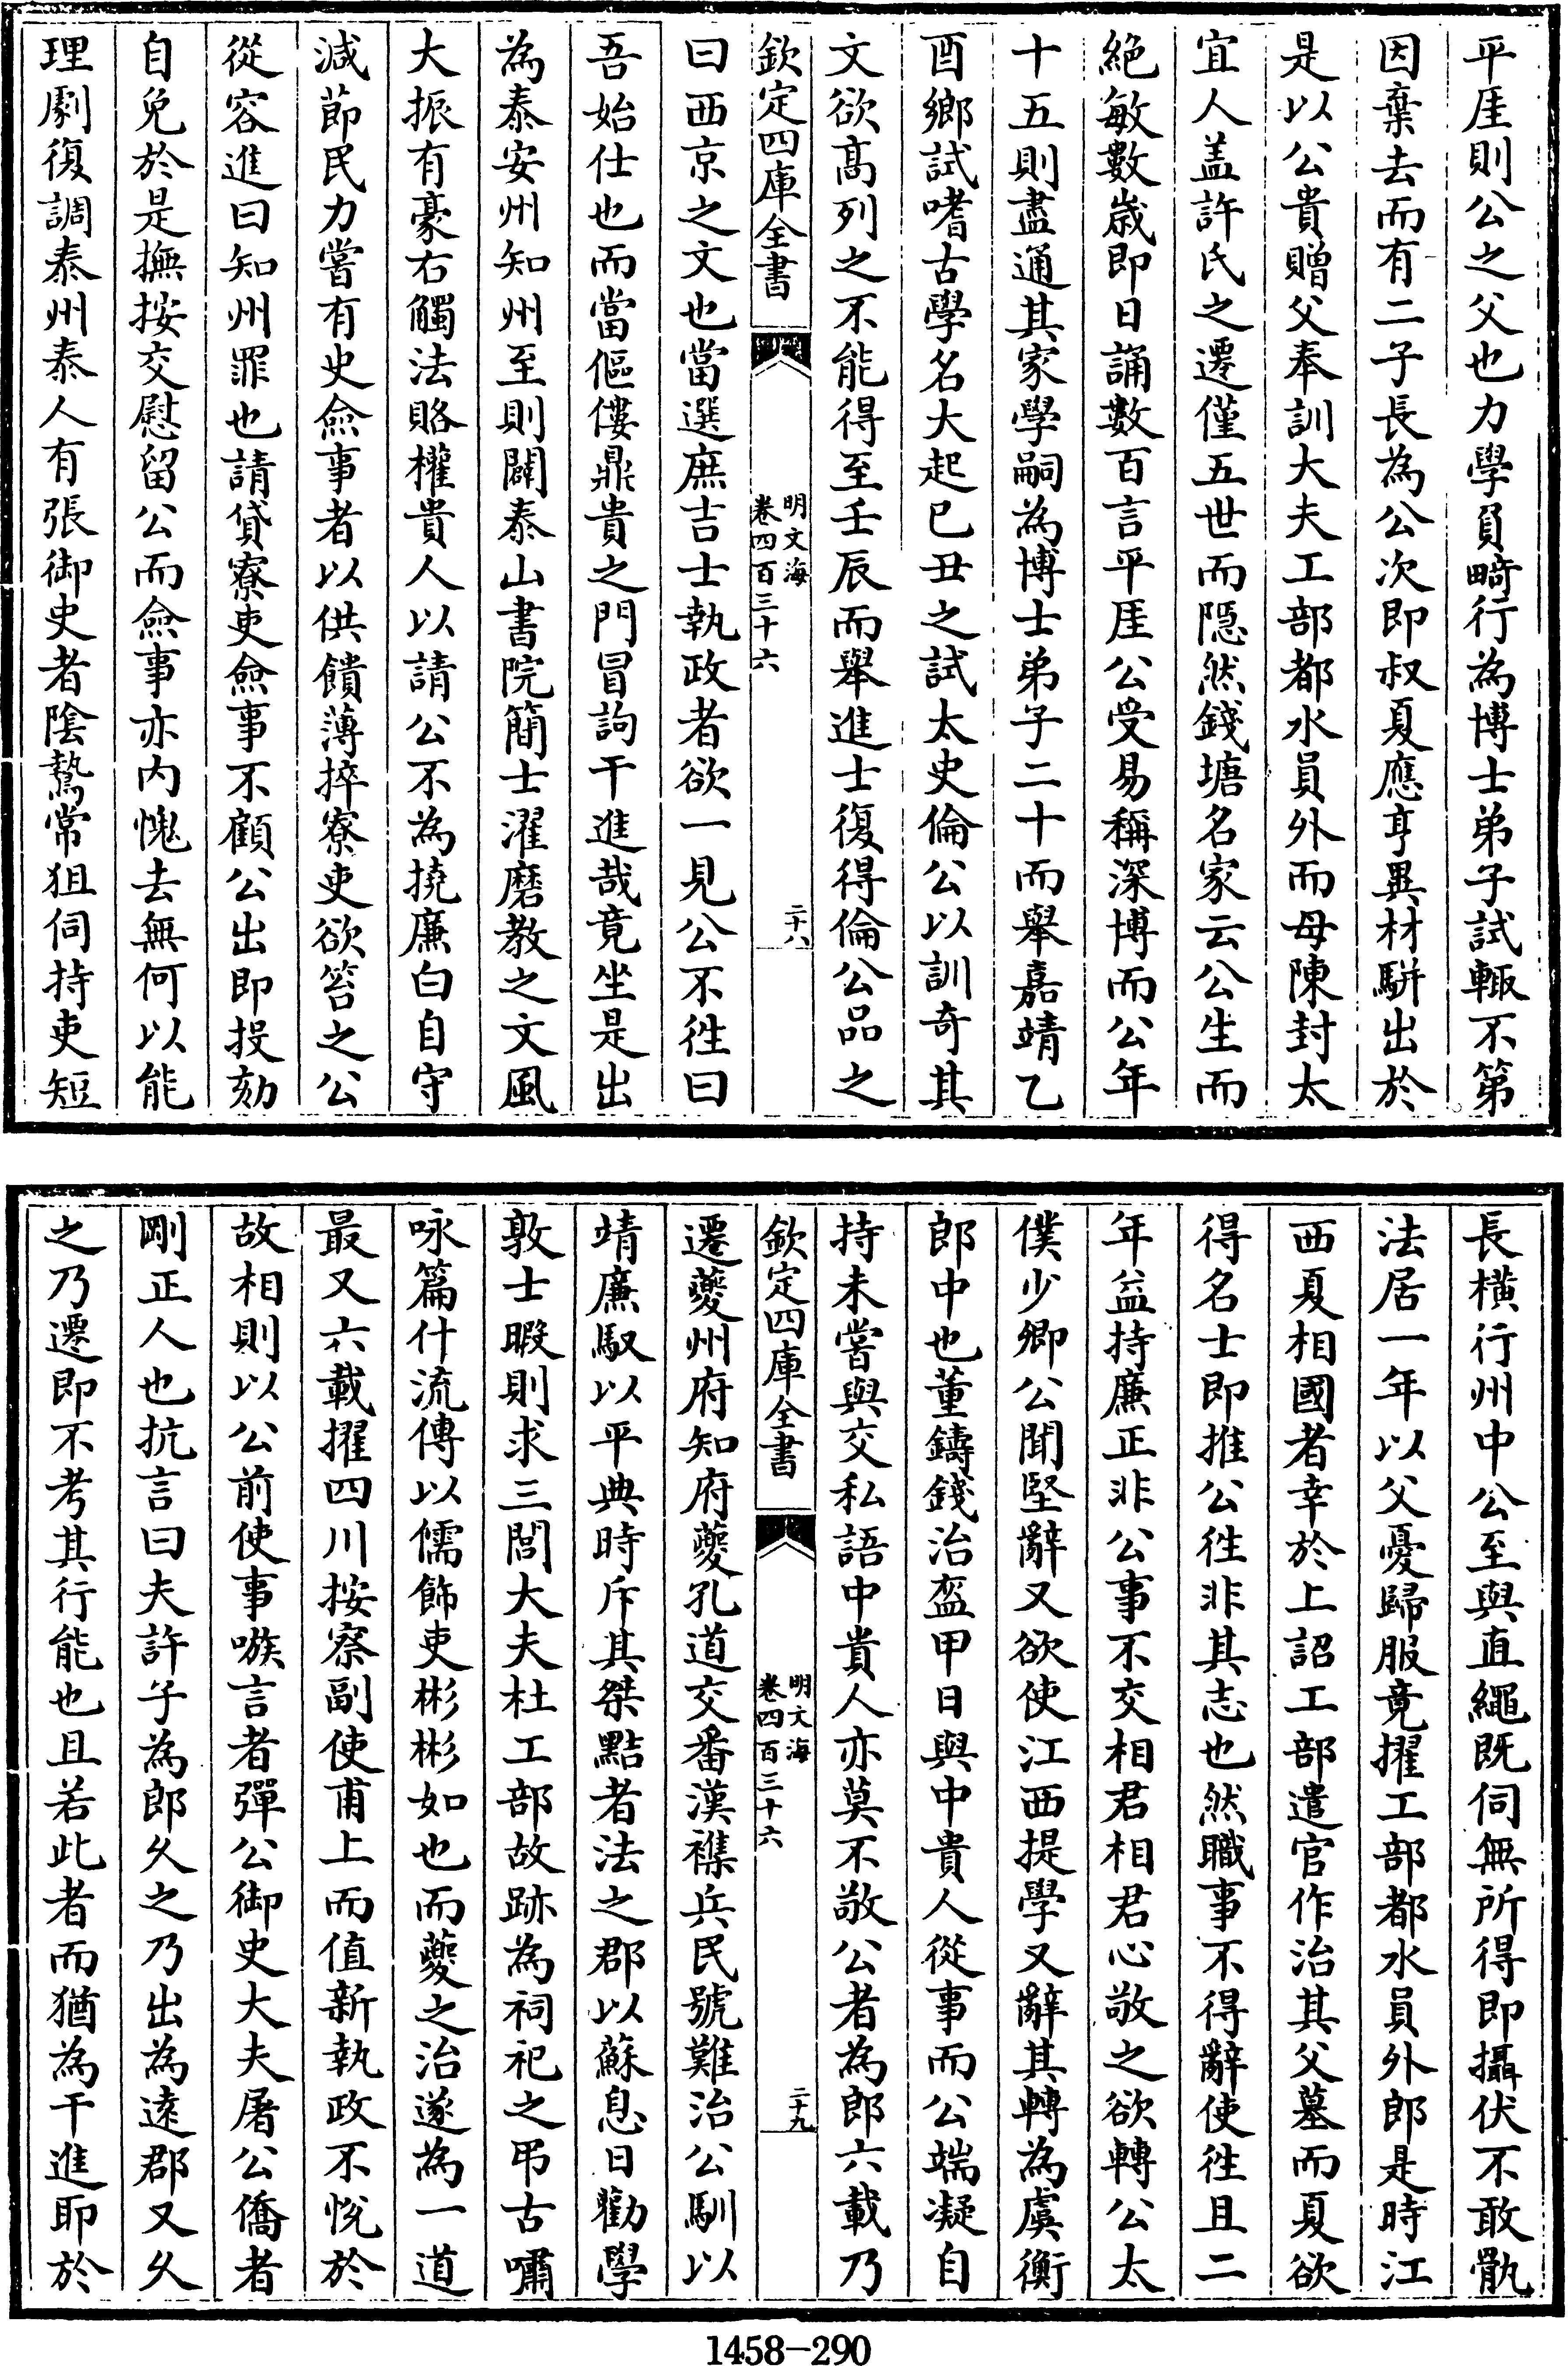 平厓則公之父也力學負畸行為博士弟子試輙不第
因棄去而有二子長為公次即叔夏應亨異材駢出於
是以公貴贈父奉訓大夫工部都水員外而母陳封太
宜人盖許氏之遷僅五世而隠然錢塘名家云公生而
絶敏數歲即日誦數百言平厓公受易稱深博而公年
十五則盡通其家學嗣為博士弟子二十而舉嘉靖乙
酉鄉試嗜古學名大起已丑之試太史倫公以訓奇其
文欲髙列之不能得至壬辰而舉進士復得倫公品之
欽定四庫全書
明文海
卷四百三十六
二十八
曰西京之文也當選庶吉士執政者欲一見公不徃曰
吾始仕也而當傴僂鼎貴之門冒訽干進哉竟坐是出
為泰安州知州至則闢泰山書院簡士濯磨教之文風
大振有豪右觸法賂權貴人以請公不為撓廉白自守
減節民力嘗有史僉事者以供饋薄捽寮吏欲笞之公
從容進曰知州罪也請貸寮吏僉事不顧公出即投劾
自免於是撫按交慰留公而僉事亦内愧去無何以能
理劇復調泰州泰人有張御史者陰鷙常狙伺持吏短
長橫行州中公至與直繩既伺無所得即攝伏不敢骫
法居一年以父憂歸服竟擢工部都水員外郎是時江
西夏相國者幸於上詔工部遣官作治其父墓而夏欲
得名士即推公徃非其志也然職事不得辭使徃且二
年益持廉正非公事不交相君相君心敬之欲轉公太
僕少卿公聞堅辭又欲使江西提學又辭其轉為虞衡
郎中也董鑄錢治盔甲日與中貴人從事而公端凝自
持未嘗與交私語中貴人亦莫不敬公者為郎六載乃
欽定四庫全書
明文海
卷四百三十六
二十九
遷夔州府知府夔孔道交番漢襍兵民號難治公馴以
靖廉馭以平典時斥其桀黠者法之郡以蘇息日勸學
敦士暇則求三閭大夫杜工部故跡為祠祀之弔古嘯
咏篇什流傳以儒飾吏彬彬如也而夔之治遂為一道
最又六載擢四川按察副使甫上而值新執政不悅於
故相則以公前使事嗾言者彈公御史大夫屠公僑者
剛正人也抗言曰夫許子為郎乆之乃出為逺郡又乆
之乃遷即不考其行能也且若此者而猶為干進耶於
1458-290